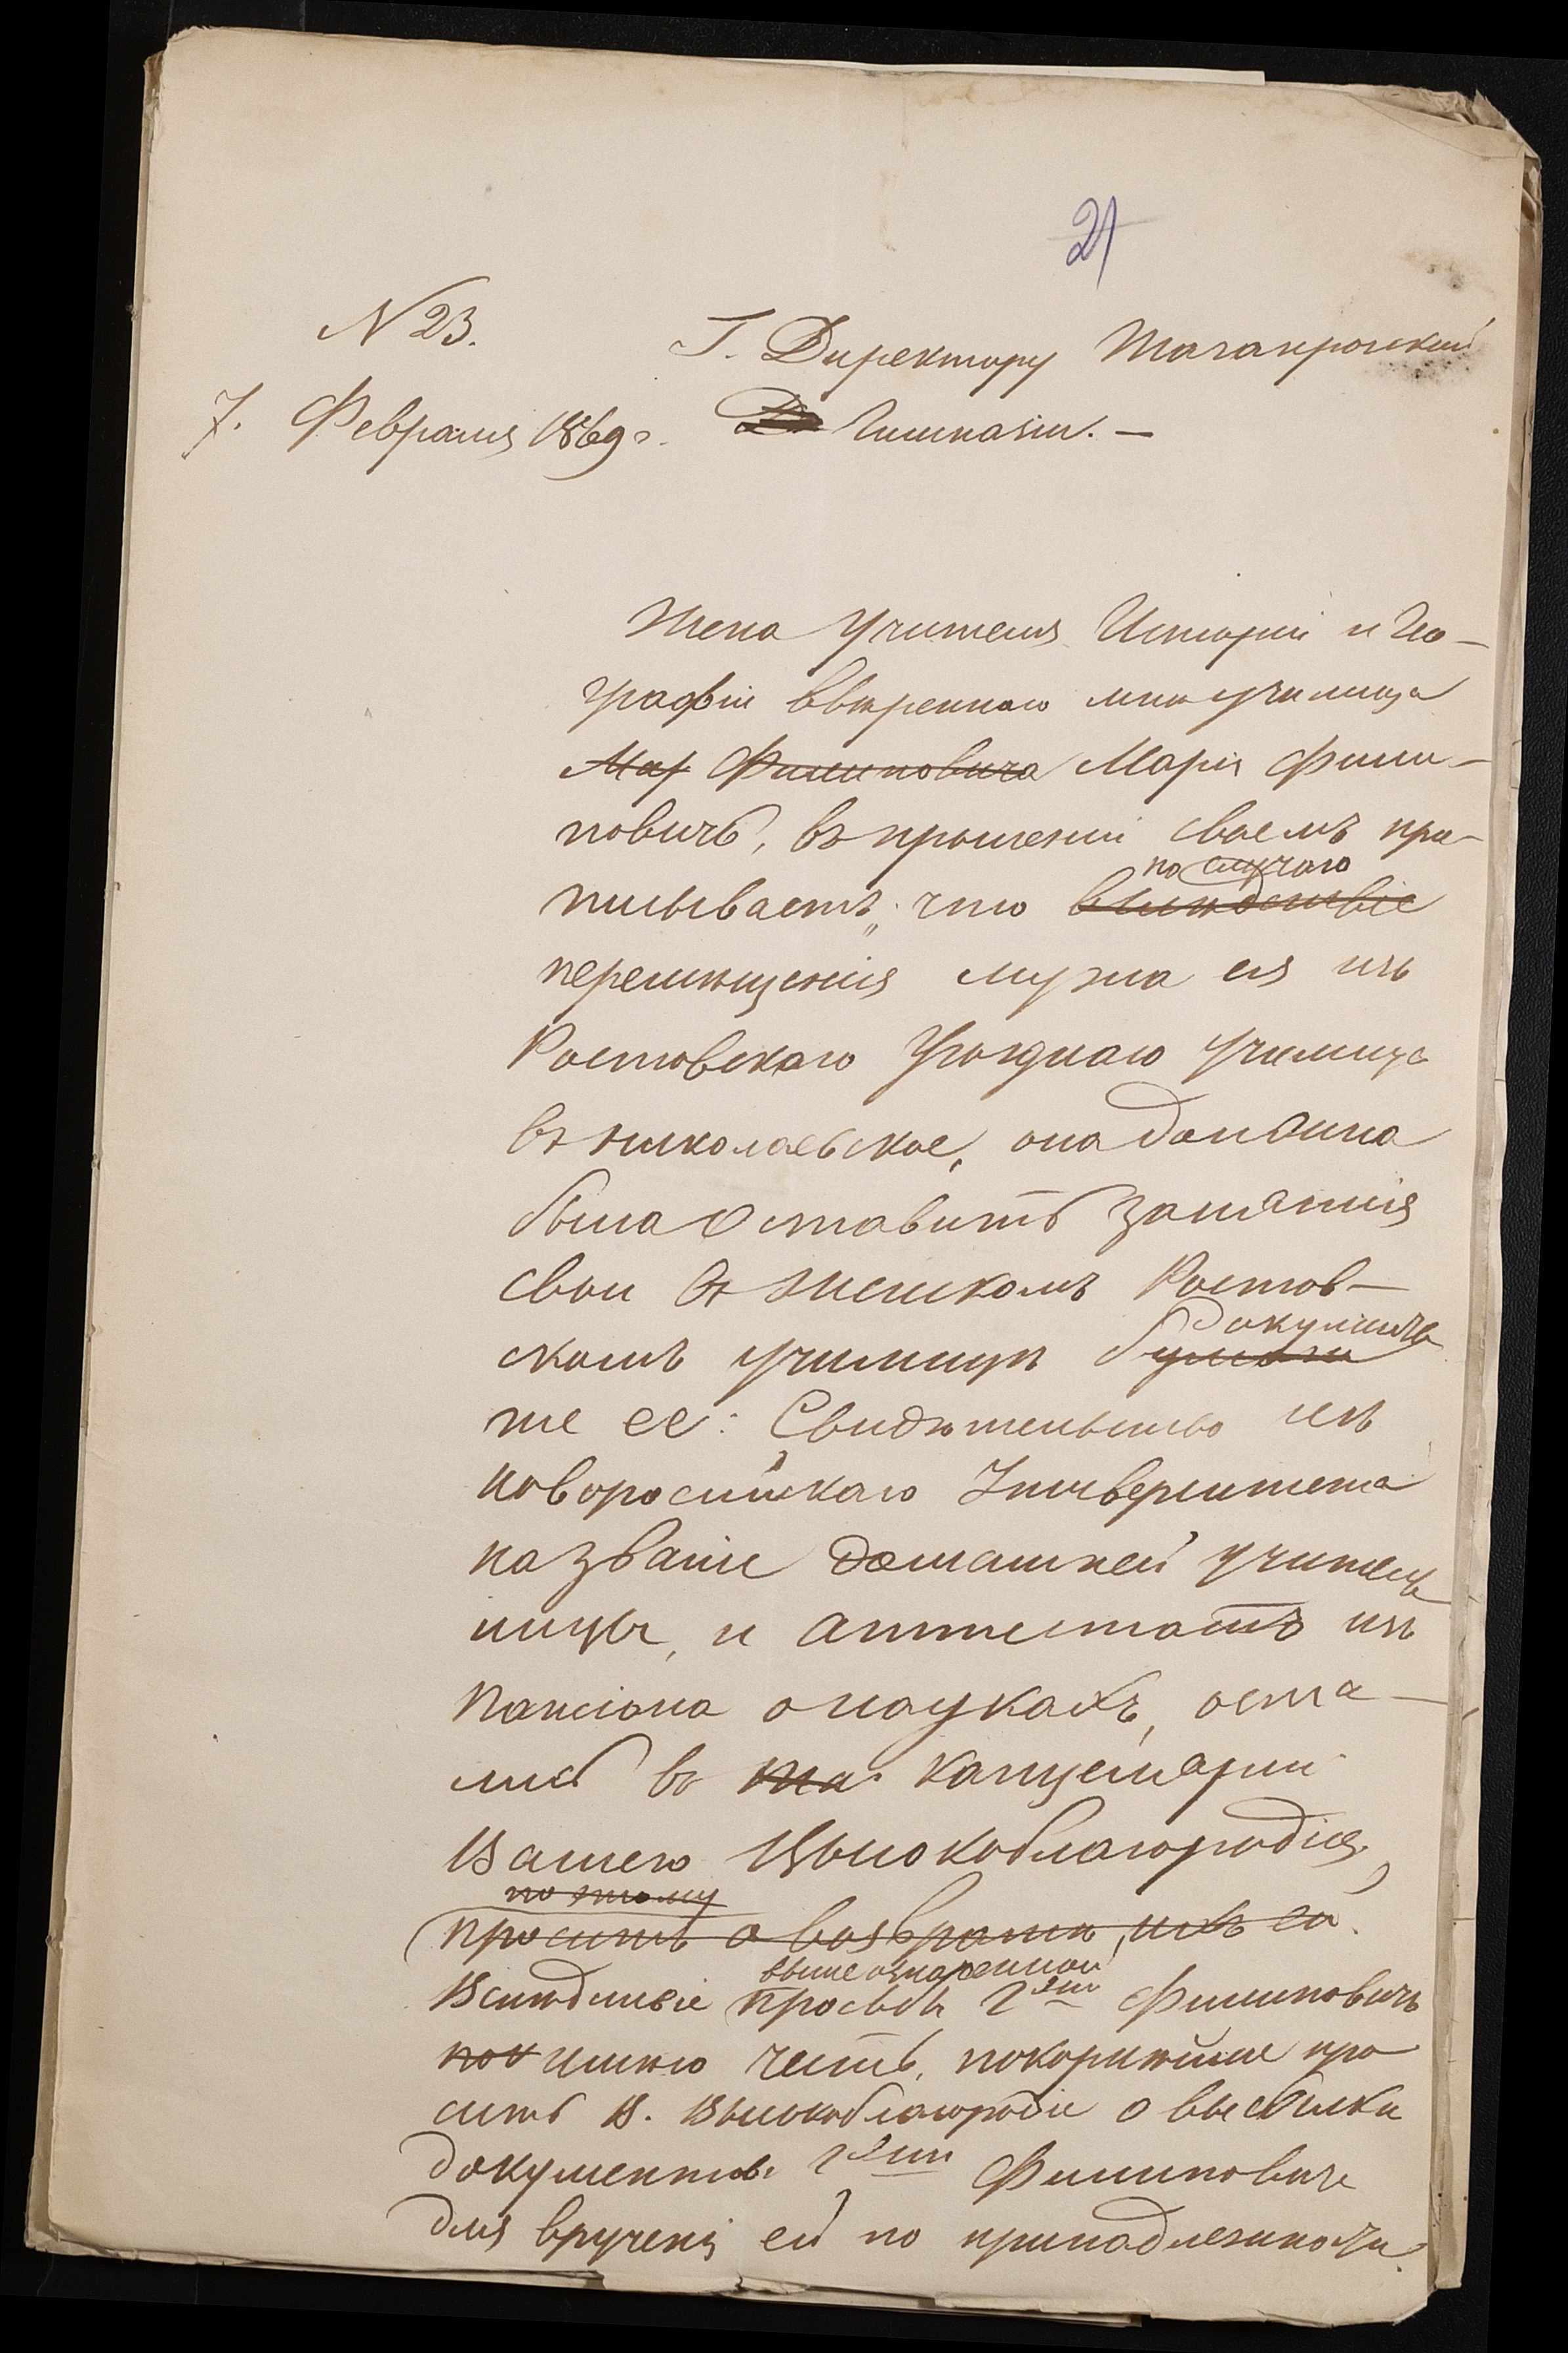 21
N 23.
Г. Директору Таганрогской
7. Февраля 1869 г.
Гимназіи. —
Жена Учителя Исторіи и Гео-
графіи ввѣреннаго мнѣ училища
Мар Филиповича Марія Фили-
повичь, въ прошеніи своемъ про-
по случаю
писываетъ, что вслѣдствіе
перемѣщенія мужа ея изъ
Ростовскаго Уѣзднаго Училища
въ Николаевское, она должна
была оставить занятія
свои въ женскомъ Ростов-
документы
скомъ училищѣ бумаги
же ее: Свидѣтельство изъ
новоросійскаго Университета
на званіе домашней учитель
ницы, и аттестатъ изъ
пансіона о наукахъ, оста-
лись въ канцеляріи
Вашего Высокоблагородія,
по этому
просить о возвратѣ ихъ ей.
вышеозначенной
Вслѣдствіе просьбы Гжи Филиповичь
пок имѣю честь, покорнѣйше про
сить В. Высокоблагородіе о высылки
документовъ Гжи Филиповичь
для врученія ей по принадлежности.